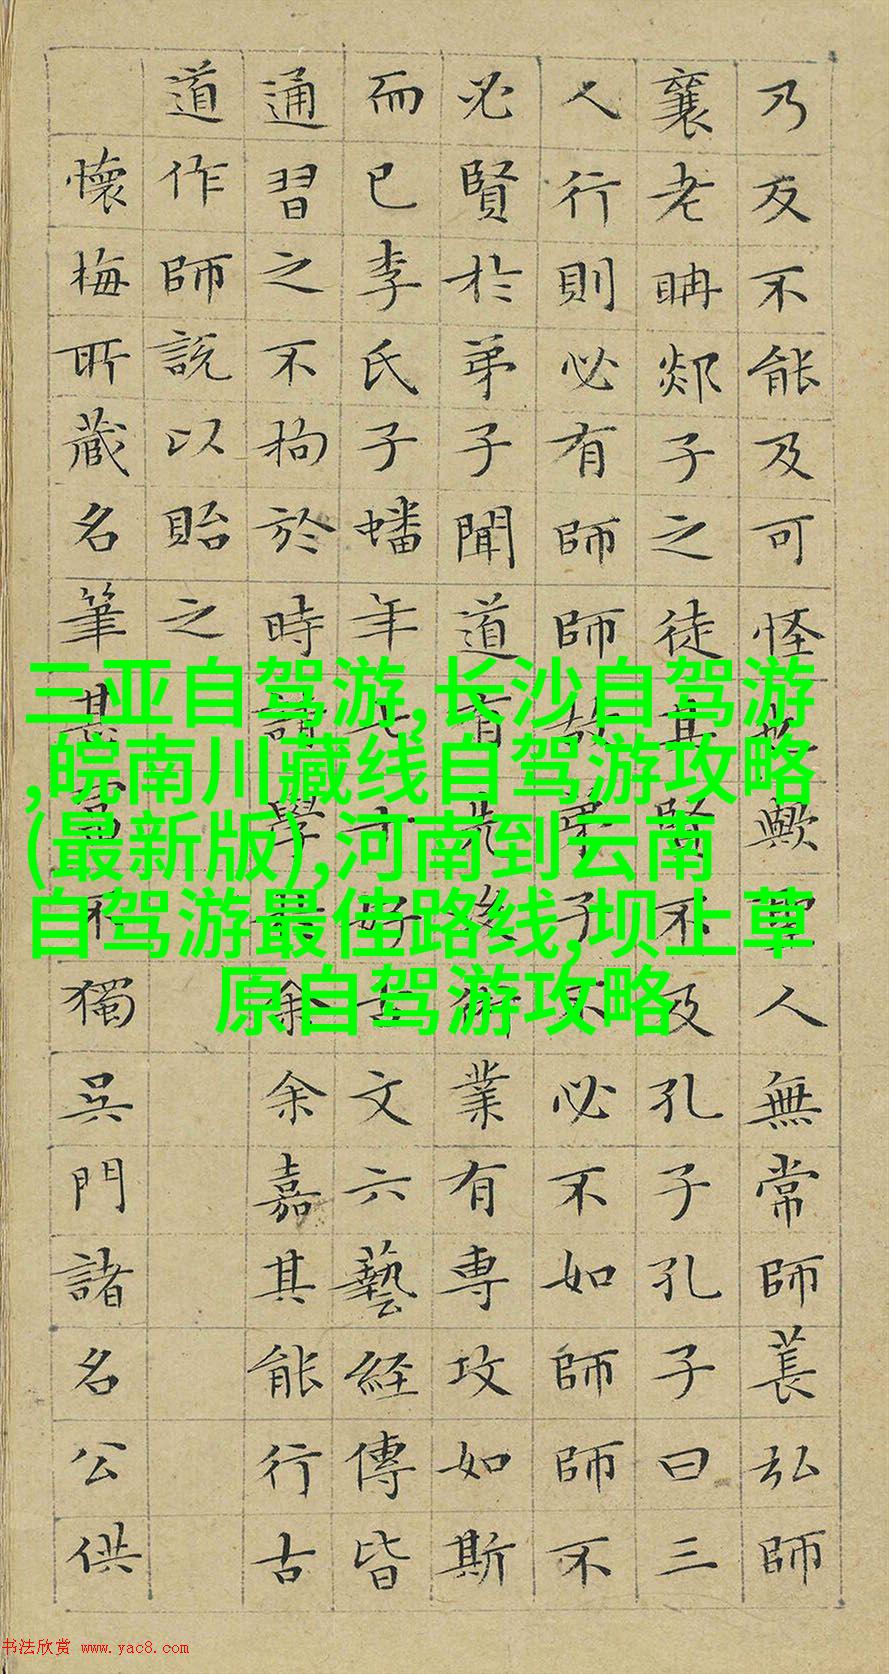 乃反不能及可怪也歟聖人無常師萇弘師
襄老聃郯子之徒其賢不及孔子孔子曰三
人行則必有師師故弟子不必不如師師不
必賢於弟子聞道有先後術業有專攻如斯
而已李氏子蟠年十七好古文六藝経傳皆
通習之不拘於時請學於余余嘉其能行古
道作師説以貽之
懷梅所藏名筆甚富不獨吳門諸名公供
三亚自驾游,长沙自驾游
,皖南川藏线自驾游攻略
(最新版),河南到云南
自驾游最佳路线,坝上草
原自驾游攻略
书法欣赏 www.yac8.com